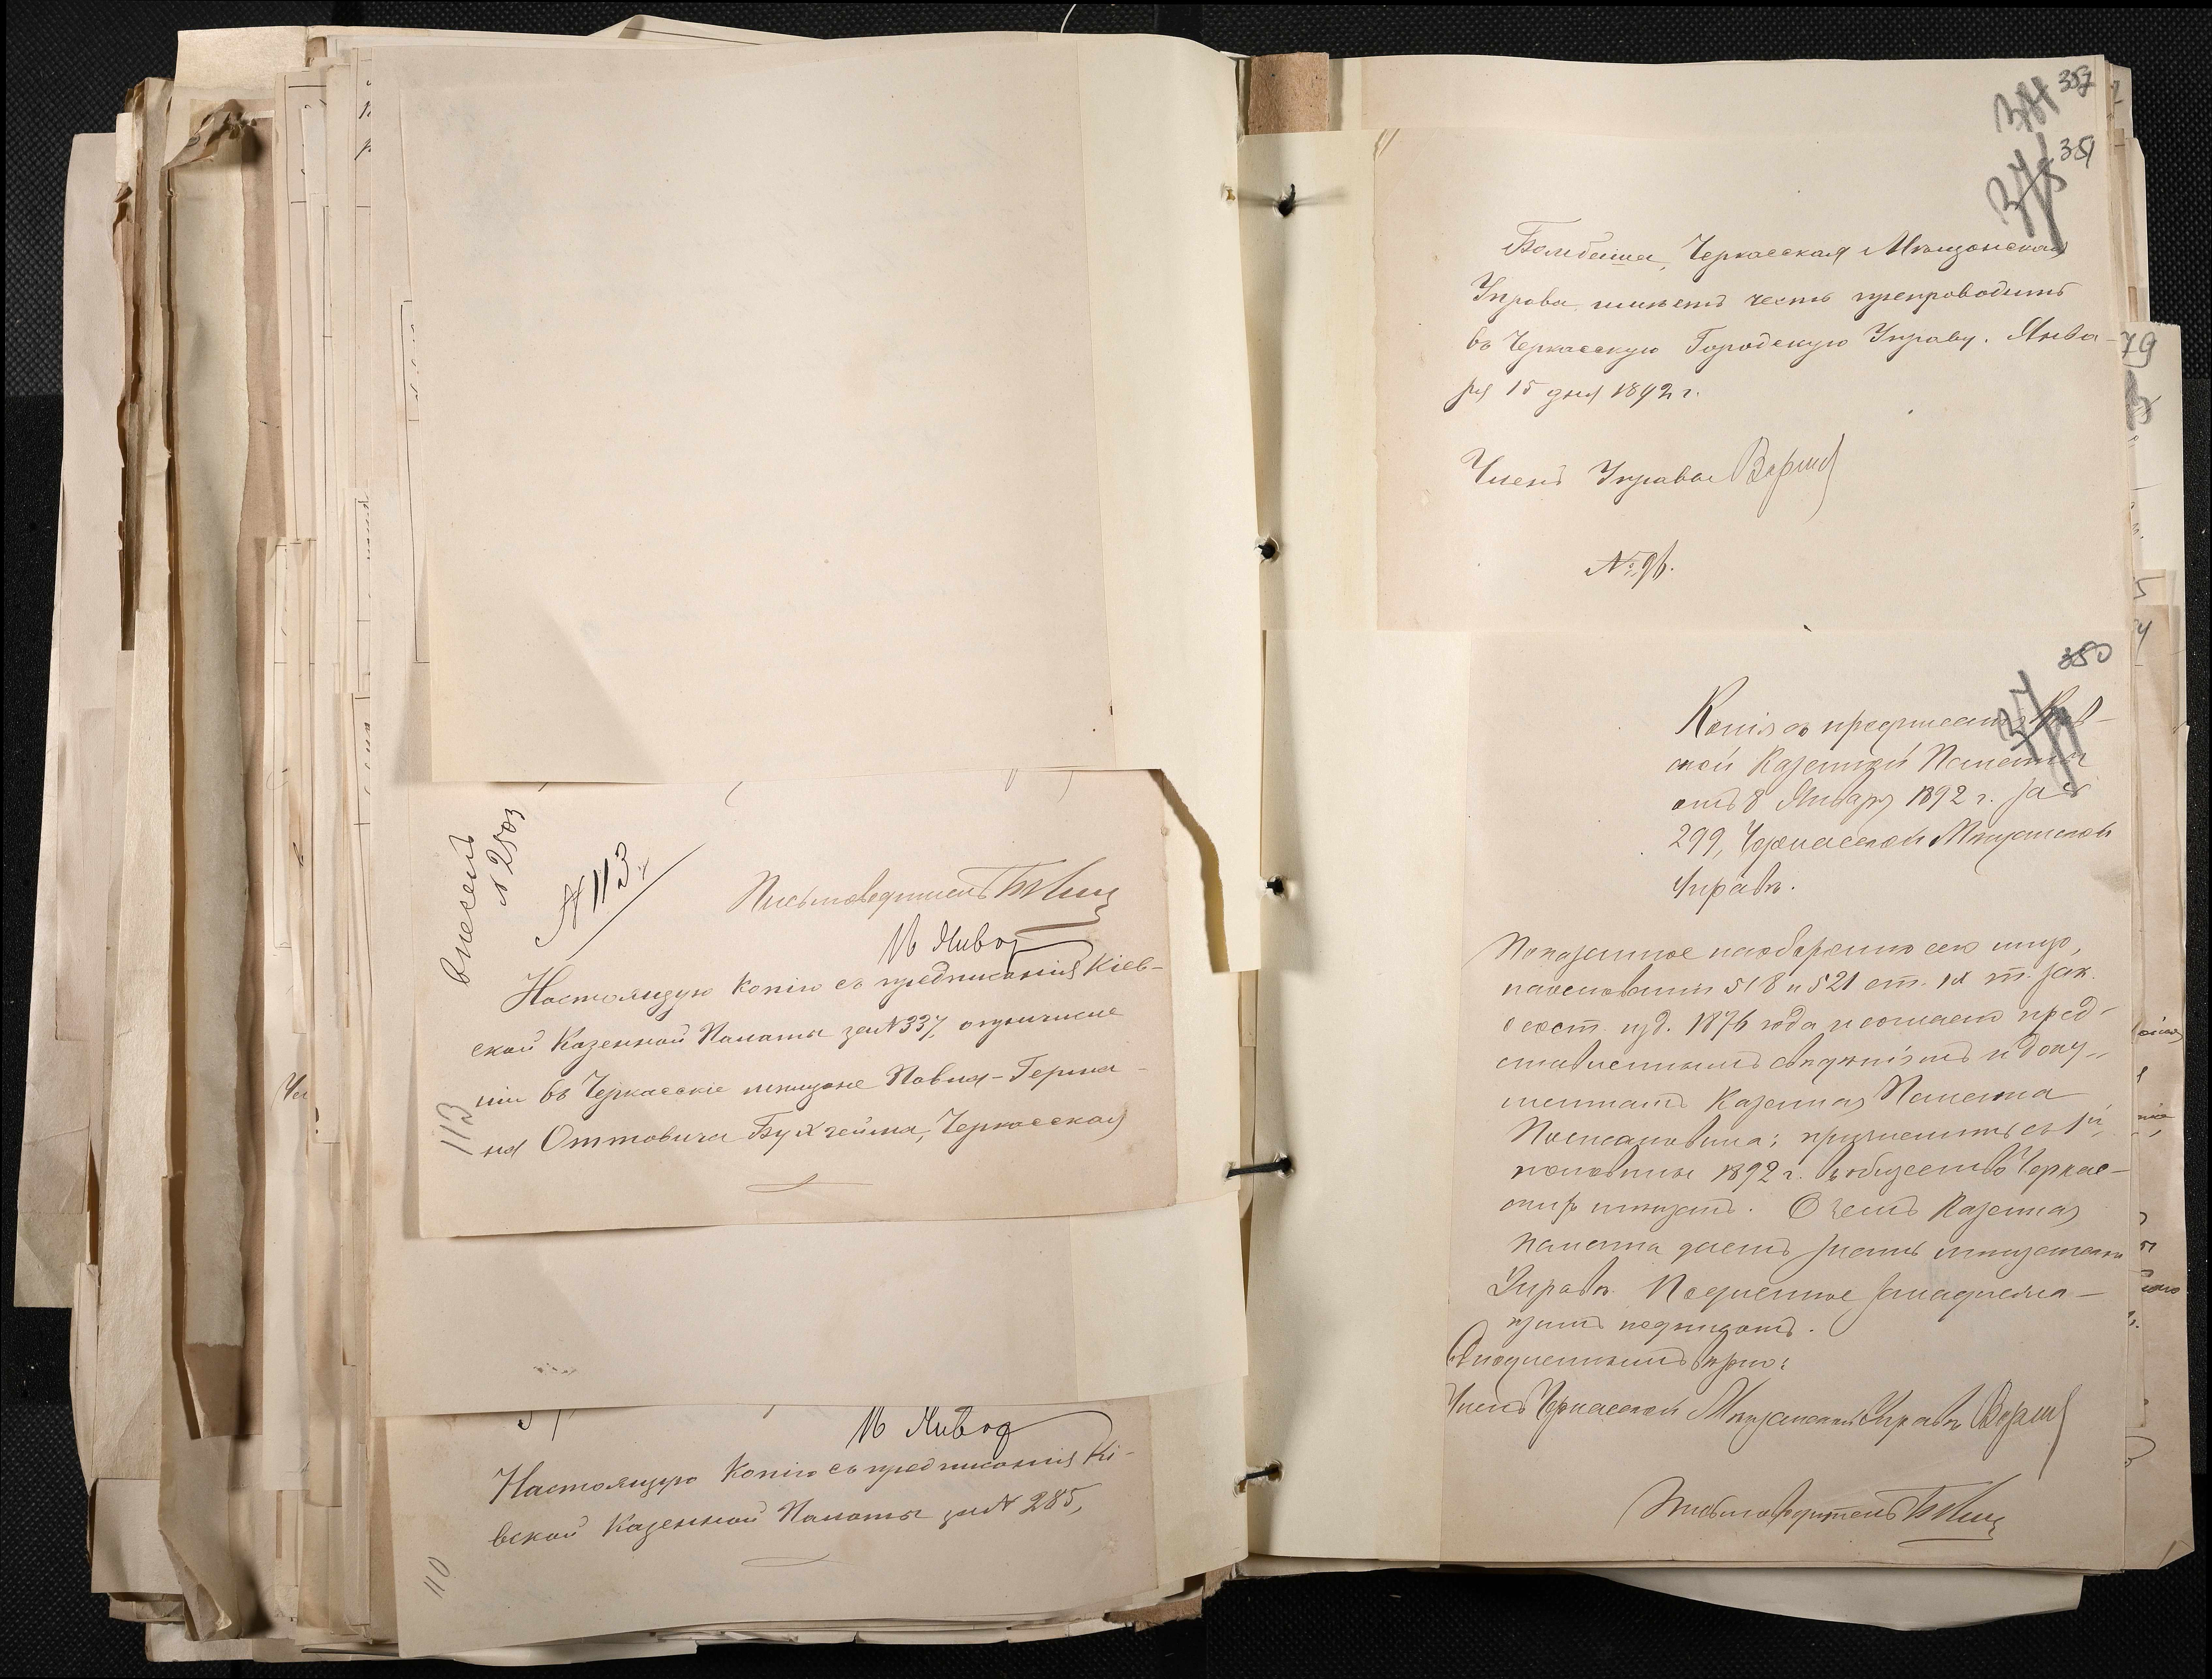 внесенъ
№ 2503
№ 113.
Письмоводитель
16 Январ
Настоящую копію съ предписанія Кіев-
ской Казенной Палаты за № 337, о причисле
ніи въ Черкасскіе мѣщане Павла-Герма-
на Оттовича Бухгейма, Черкасская
113
16 Январ
Настоящую копію съ предписанія Кі-
евской Казенной Палаты за № 285,
110
357
351
Черкасская Мѣщанская
Управа имѣетъ честь препроводить
въ Черкасскую Городскую Управу. Янва-
ря 15 дня 1892 г.
Членъ Управы
№ 96.
79
350
Копія съ предписанія Кіев-
ской Казенной Палаты
отъ 8 Января 1892 г. за №
299, Черкасской Мѣщанской
Управѣ.
Показанное наоборотѣ сего лицо,
на основаніи 518 и 521 ст. IX т. зак.
о сост. изд. 1876 года и согласно пред-
ставленнымъ свѣдѣніямъ и доку-
ментамъ Казенная Палата
Постановила: причислить съ 1й
половины 1892 г. въ общество Черкас-
скихъ мѣщанъ. О чемъ Казенная
Палата даетъ знать мѣщанской
Управѣ. Подлинное за надлежа-
щимъ подписомъ.
Съ подлиннымъ вѣрно:
Членъ Черкасской Мѣщанской Управы
Письмоводитель